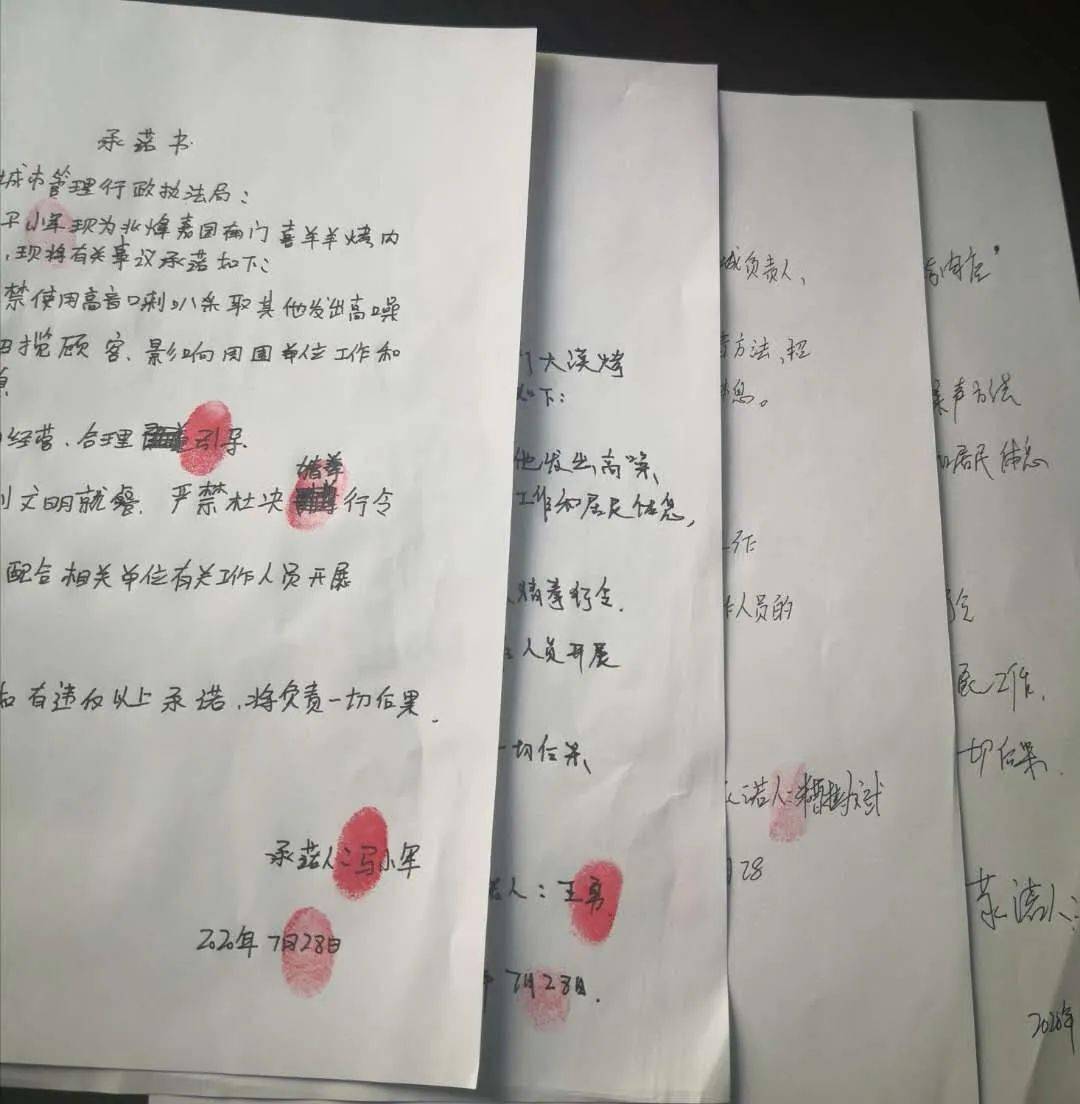 承诺书
城市管理行政执法局：
小军现为北烽嘉园南门喜羊羊烤肉
，现将有关事议承诺如下：
禁使用高音喇叭采取其他发出高噪
揽顾客、影响周围单位工作和
经营、合理引导
猜拳
文明就餐、严禁杜决行令
配合相关单位有关工作人员开展
有违反以上承诺，将负责一切后果。
承诺人：马小军
2020年7月28日
大漠烤
如下：
他发出高噪、
工作和居民休息，
猜拳行令.
人员开展
一切后果、
人：王勇
7月28日.
负责人，
方法、招
息。
工作
作人员的
诺人：
28
肉店"
噪声方法
和居民休息
行令
展工作.
一切后果.
承诺人：
2020年